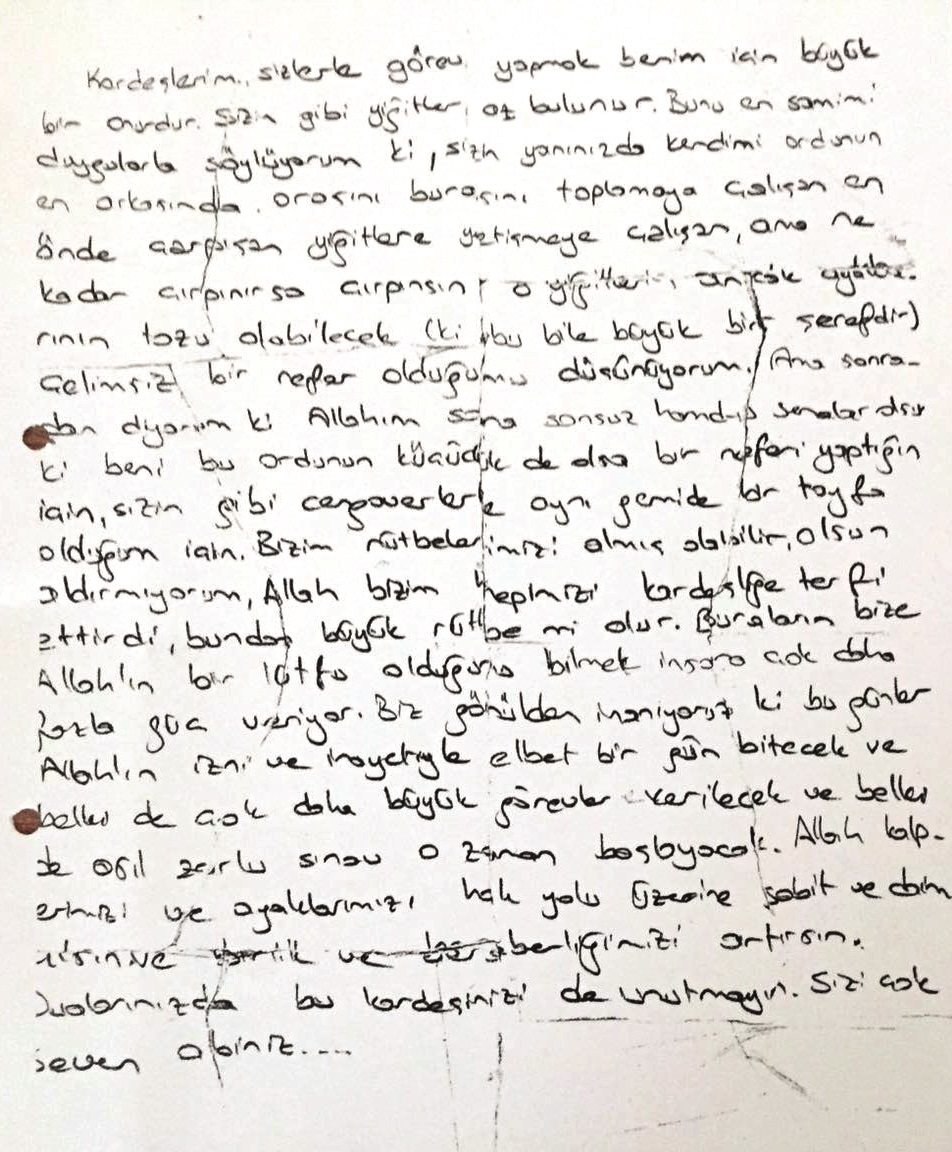 Kardeşlerim, sizlerle görev yapmak benim için büyük
bir onurdur. Sizin gibi yiğitler az bulunur. Bunu en samimi
duygularla söylüyorum ki, sizin yanınızda kendimi ordunun
en arkasında orasını burasını toplamaya çalışan en
önde çarpışan yiğitlere yetişmeye çalışan, ama ne
kadar çırpınırsa çırpınsın o yiğitlerin ancak
rının tozu olabilecek (ki bu bile büyük bir şerefdir)
çelimsiz bir nefer olduğumu düşünüyorum. Ama sonra-
dan diyorum ki Allahım sana sonsuz hamd senalar olsun
ki beni bu ordunun küçücük de olsa bir neferi yaptığın
için, sizin gibi cengaverlerle aynı gemide bir tayfa
olduğum için. Bizim rütbelerimizi almış olabilir, olsun
aldırmıyorum, Allah bizim hepimizi kardeşliğe terfi
ettirdi, bundan büyük rütbe mi olur. Buraların bize
Allah'ın bir lütfu olduğunu bilmek insana çok daha
fazla güç veriyor. Biz gönülden inanıyoruz ki bu günler
Allah'ın izni ve inayetiyle elbet bir gün bitecek ve
belki de çok daha büyük görevler verilecek ve belki
de asıl zorlu sınav o zaman başlayacak. Allah kalp-
erimizi ve ayaklarımızı hak yolu üzerine sabit ve daim
ve berliğimizi artırsın.
Dualarınızda bu kardeşinizi de unutmayın. Sizi çok
seven abiniz....